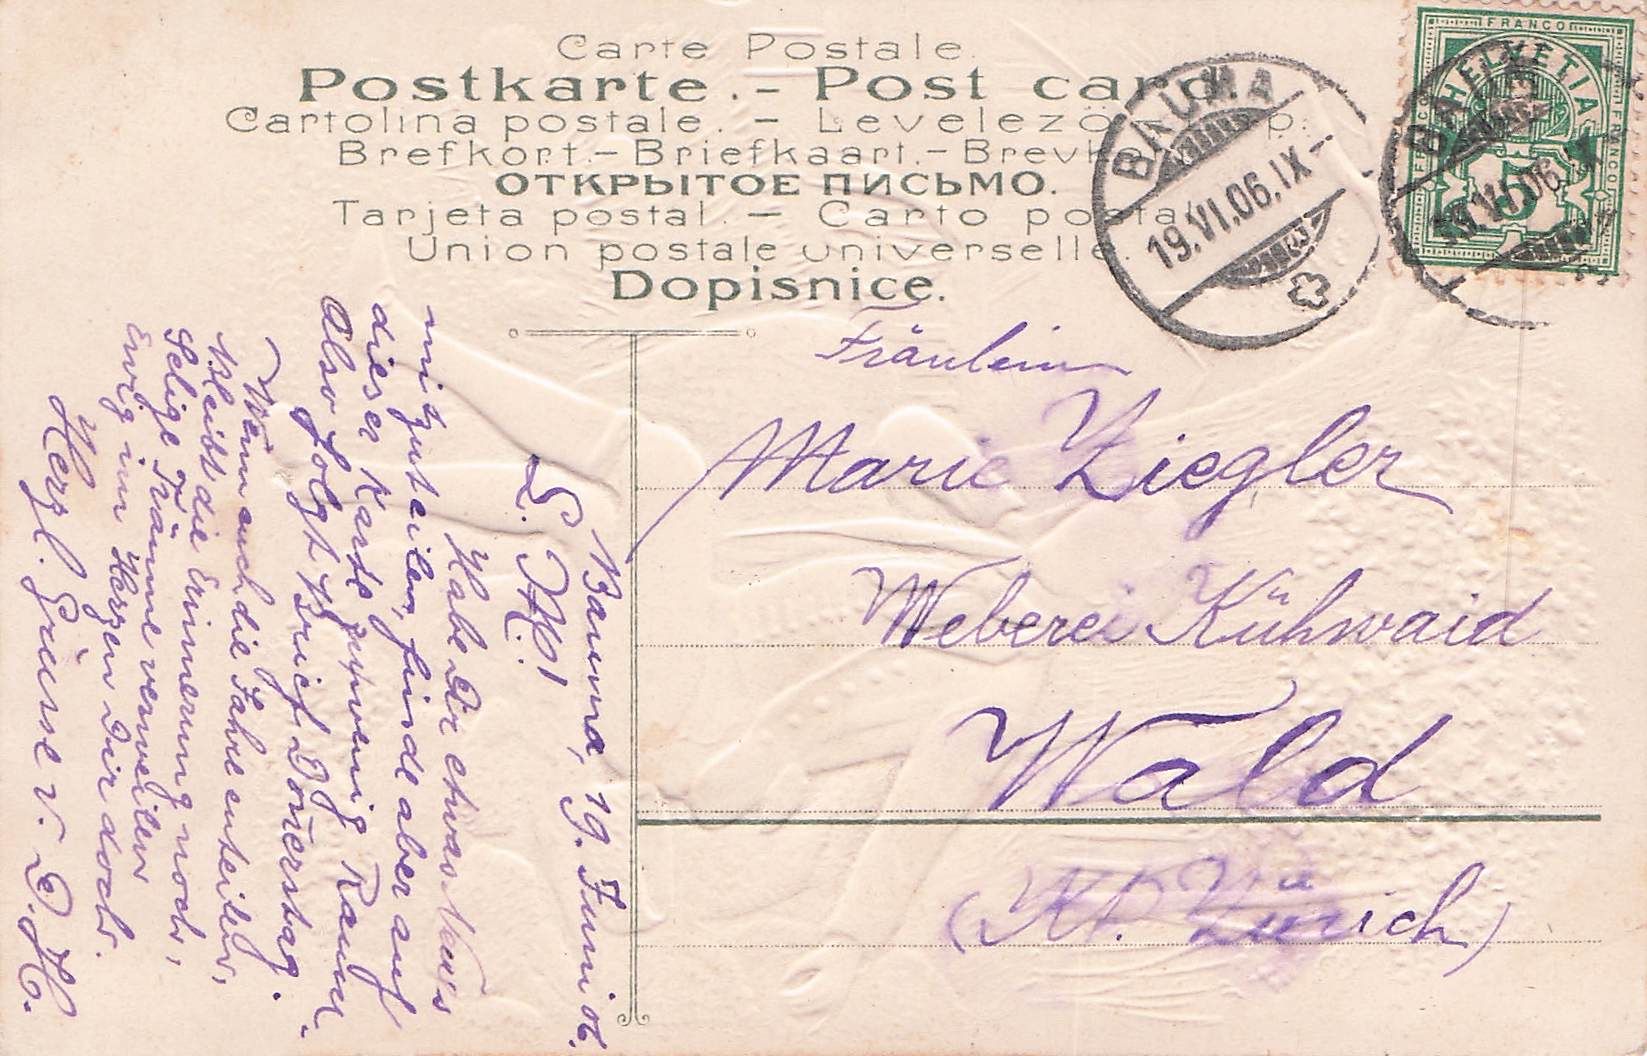 Carte Postale.
Postkarte. - Post card
Cartolina postale. - Levelezö p.
Brefkort. - Briefkaart. - Brevk
ОТКРЫТОЕ ПИСЬМО.
Tarjeta postal. - Carto postal
Union postale universelle.
Dopisnice.
FRANCO
HELVETIA
FRANCO
5
BAUMA
19.VI.06.IX-
BAUMA
19.VI.06.IX
Fräulein
Marie Ziegler
Weberei Kühwaid
Wald
(Kt. Zürich)
Bauma, 19. Juni 06.
L. M!
Habe Dir etwas Neu's
mitzuteilen, finde aber auf
dieser Karte zu wenig Raum.
Also folgt Brief Donerstag.
Wenn auch die Jahre enteilen,
Bleibt die Erinnerung noch,
Selige Träume verweilen
Ewig im Herzen Dir doch.
Herzl. Grüsse v. D. H.